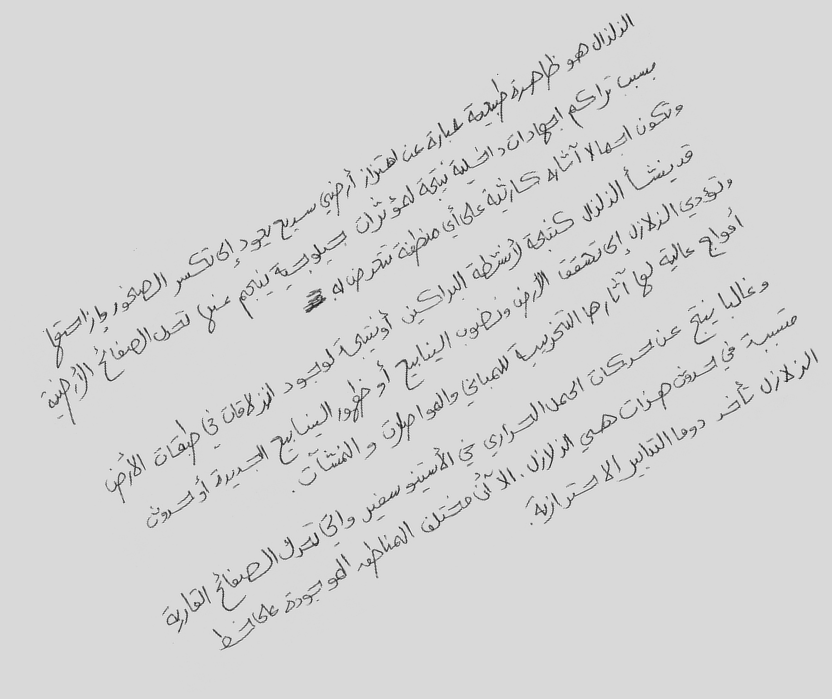 الزلزال هو ظاهرة طبيعية عبارة عن اهتزاز أرضي سريع يعود إلى تكسر الصخور وإزاحتها
بسبب تراكم اجهادات داخلية نتيجة لمؤثرات جيولوجية ينجم عنها تحرك الصفائح الأرضية
وتكون اجمالا آثاره كارثية على أي منطقة تتعرض له
قد ينشأ الزلزال كنتيجة لأنشطة البراكين أو نتيجة لوجود انزلاقات في طبقات الأرض
وتؤدي الزلازل إلى تشقق الأرض ونضوب الينابيع أو ظهور الينابيع الجديدة أو حدوث
أمواج عالية لها آثارها التخريبية للمباني والمواصلات والمنشآت.
وغالبا ينتج عن حركات الحمل الحراري في الأستينوسفير والتي تحرك الصفائح القارية
متسببة في حدوث هزات هي الزلازل. الا أن مختلف المناطق الموجودة على خط
الزلازل تأخذ دوما التدابير الاحترازية.